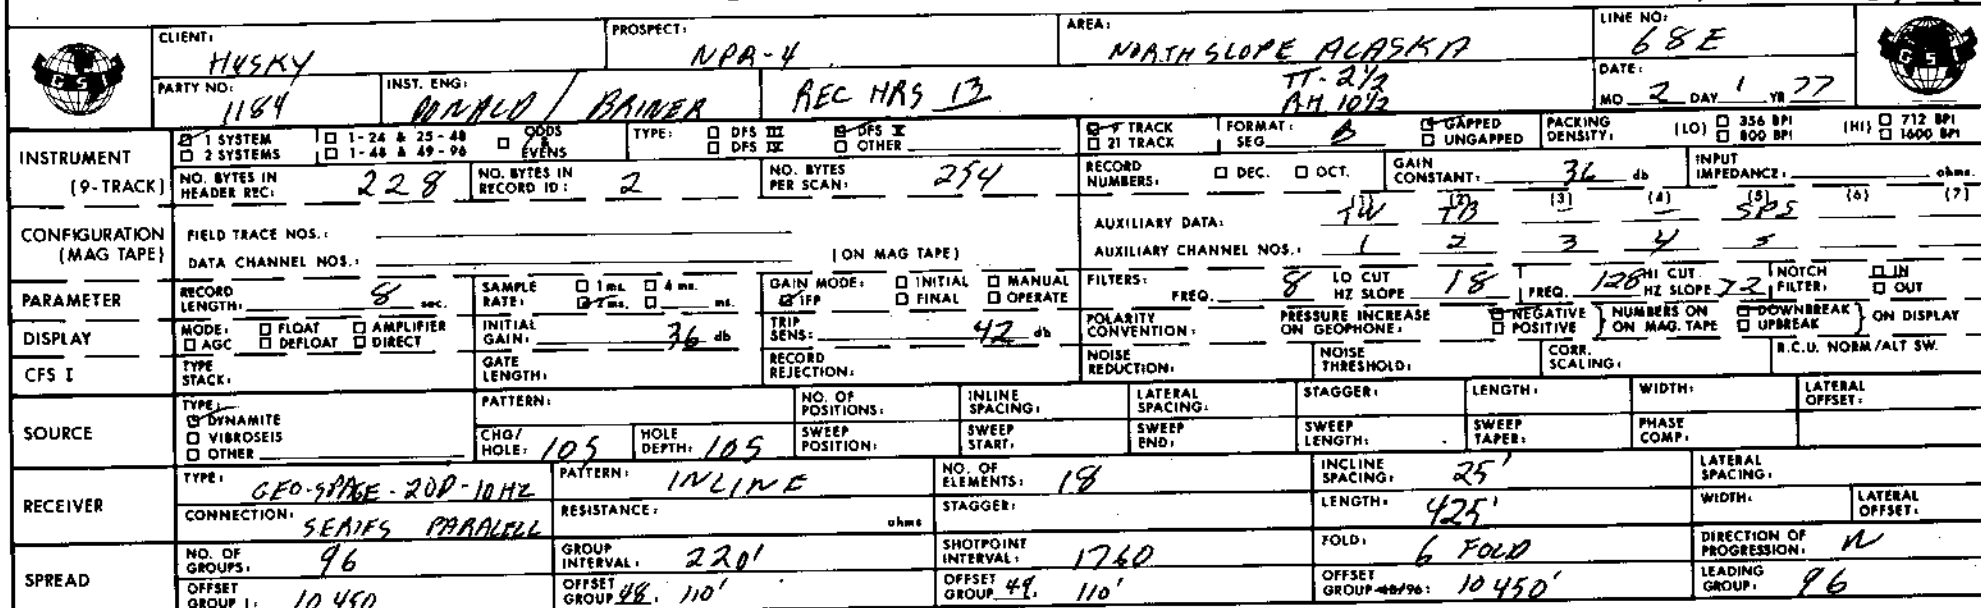 CLIENT: HUSKY PROSPECT: NPR-4 AREA: NORTH SLOPE ALASKA LINE NO: 68E
GSI
PARTY NO: 1184 INST. ENG: DONALD / BRINER REC HRS 13 TT-2½ DATE:
AH 10½ MO 2 DAY 1 YR 77
INSTRUMENT 1 SYSTEM 1-24 & 25-48 ODDS & EVENS TYPE: DFS III DFS V 9 TRACK FORMAT: SEG B GAPPED PACKING DENSITY: (LO) 356 BPI (HI) 712 BPI
2 SYSTEMS 1-48 & 49-96 DFS IV OTHER 21 TRACK UNGAPPED 800 BPI 1600 BPI
(9-TRACK) NO. BYTES IN HEADER REC: 228 NO. BYTES IN RECORD ID: 2 NO. BYTES PER SCAN: 254 RECORD NUMBERS: DEC. OCT. GAIN CONSTANT: 36 db INPUT IMPEDANCE: ohms.
CONFIGURATION (MAG TAPE) FIELD TRACE NOS.: AUXILIARY DATA: (1) TW (2) TB (3) - (4) - (5) SPS (6) (7)
DATA CHANNEL NOS.: (ON MAG TAPE) AUXILIARY CHANNEL NOS.: 1 2 3 4 5
PARAMETER RECORD LENGTH: 8 sec. SAMPLE RATE: 1 ms. 4 ms. 2 ms. ms. GAIN MODE: INITIAL MANUAL IFP FINAL OPERATE FILTERS: FREQ. 8 LO CUT HZ SLOPE 18 FREQ. 128 HI CUT HZ SLOPE 72 NOTCH FILTER: IN OUT
DISPLAY MODE: FLOAT AMPLIFIER AGC DEFLOAT DIRECT INITIAL GAIN: 36 db TRIP SENS: 42 db POLARITY CONVENTION: PRESSURE INCREASE ON GEOPHONE: NEGATIVE POSITIVE } NUMBERS ON ON MAG. TAPE DOWNBREAK UPBREAK } ON DISPLAY
CFS I TYPE STACK: GATE LENGTH: RECORD REJECTION: NOISE REDUCTION: NOISE THRESHOLD: CORR. SCALING: R.C.U. NORM/ALT SW.
SOURCE TYPE: DYNAMITE VIBROSEIS OTHER PATTERN: NO. OF POSITIONS: INLINE SPACING: LATERAL SPACING: STAGGER: LENGTH: WIDTH: LATERAL OFFSET:
CHG/HOLE: 105 HOLE DEPTH: 105 SWEEP POSITION: SWEEP START: SWEEP END: SWEEP LENGTH: SWEEP TAPER: PHASE COMP:
RECEIVER TYPE: GEO-SPACE-20D-10HZ PATTERN: INLINE NO. OF ELEMENTS: 18 INCLINE SPACING: 25' LATERAL SPACING:
CONNECTION: SERIES PARALELL RESISTANCE: ohms STAGGER: LENGTH: 425' WIDTH: LATERAL OFFSET:
SPREAD NO. OF GROUPS: 96 GROUP INTERVAL: 220' SHOTPOINT INTERVAL: 1760 FOLD: 6 FOLD DIRECTION OF PROGRESSION: N
OFFSET GROUP 1: 10450 OFFSET GROUP 48: 110' OFFSET GROUP 49: 110' OFFSET GROUP 48/96: 10450' LEADING GROUP: 96